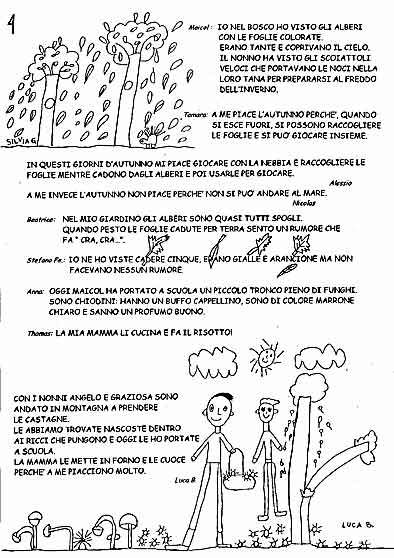 1
Maicol: IO NEL BOSCO HO VISTO GLI ALBERI
CON LE FOGLIE COLORATE.
ERANO TANTE E COPRIVANO IL CIELO.
IL NONNO HA VISTO GLI SCOIATTOLI
VELOCI CHE PORTAVANO LE NOCI NELLA
LORO TANA PER PREPARARSI AL FREDDO
DELL'INVERNO.
Tamara: A ME PIACE L'AUTUNNO PERCHE', QUANDO
SI ESCE FUORI, SI POSSONO RACCOGLIERE
LE FOGLIE E SI PUO' GIOCARE INSIEME.
SILVIA G.
IN QUESTI GIORNI D'AUTUNNO MI PIACE GIOCARE CON LA NEBBIA E RACCOGLIERE LE
FOGLIE MENTRE CADONO DAGLI ALBERI E POI USARLE PER GIOCARE.
Alessio
A ME INVECE L'AUTUNNO NON PIACE PERCHE' NON SI PUO' ANDARE AL MARE.
Nicolas
Beatrice: NEL MIO GIARDINO GLI ALBERI SONO QUASI TUTTI SPOGLI.
QUANDO PESTO LE FOGLIE CADUTE PER TERRA SENTO UN RUMORE CHE
FA " CRA, CRA...".
Stefano Fe.: IO NE HO VISTE CADERE CINQUE, ERANO GIALLE E ARANCIONE MA NON
FACEVANO NESSUN RUMORE
Anna: OGGI MAICOL HA PORTATO A SCUOLA UN PICCOLO TRONCO PIENO DI FUNGHI.
SONO CHIODINI: HANNO UN BUFFO CAPPELLINO, SONO DI COLORE MARRONE
CHIARO E SANNO UN PROFUMO BUONO.
Thomas: LA MIA MAMMA LI CUCINA E FA IL RISOTTO!
CON I NONNI ANGELO E GRAZIOSA SONO
ANDATO IN MONTAGNA A PRENDERE
LE CASTAGNE.
LE ABBIAMO TROVATE NASCOSTE DENTRO
AI RICCI CHE PUNGONO E OGGI LE HO PORTATE
A SCUOLA.
LA MAMMA LE METTE IN FORNO E LE CUOCE
PERCHE' A ME PIACCIONO MOLTO.
Luca B.
LUCA B.